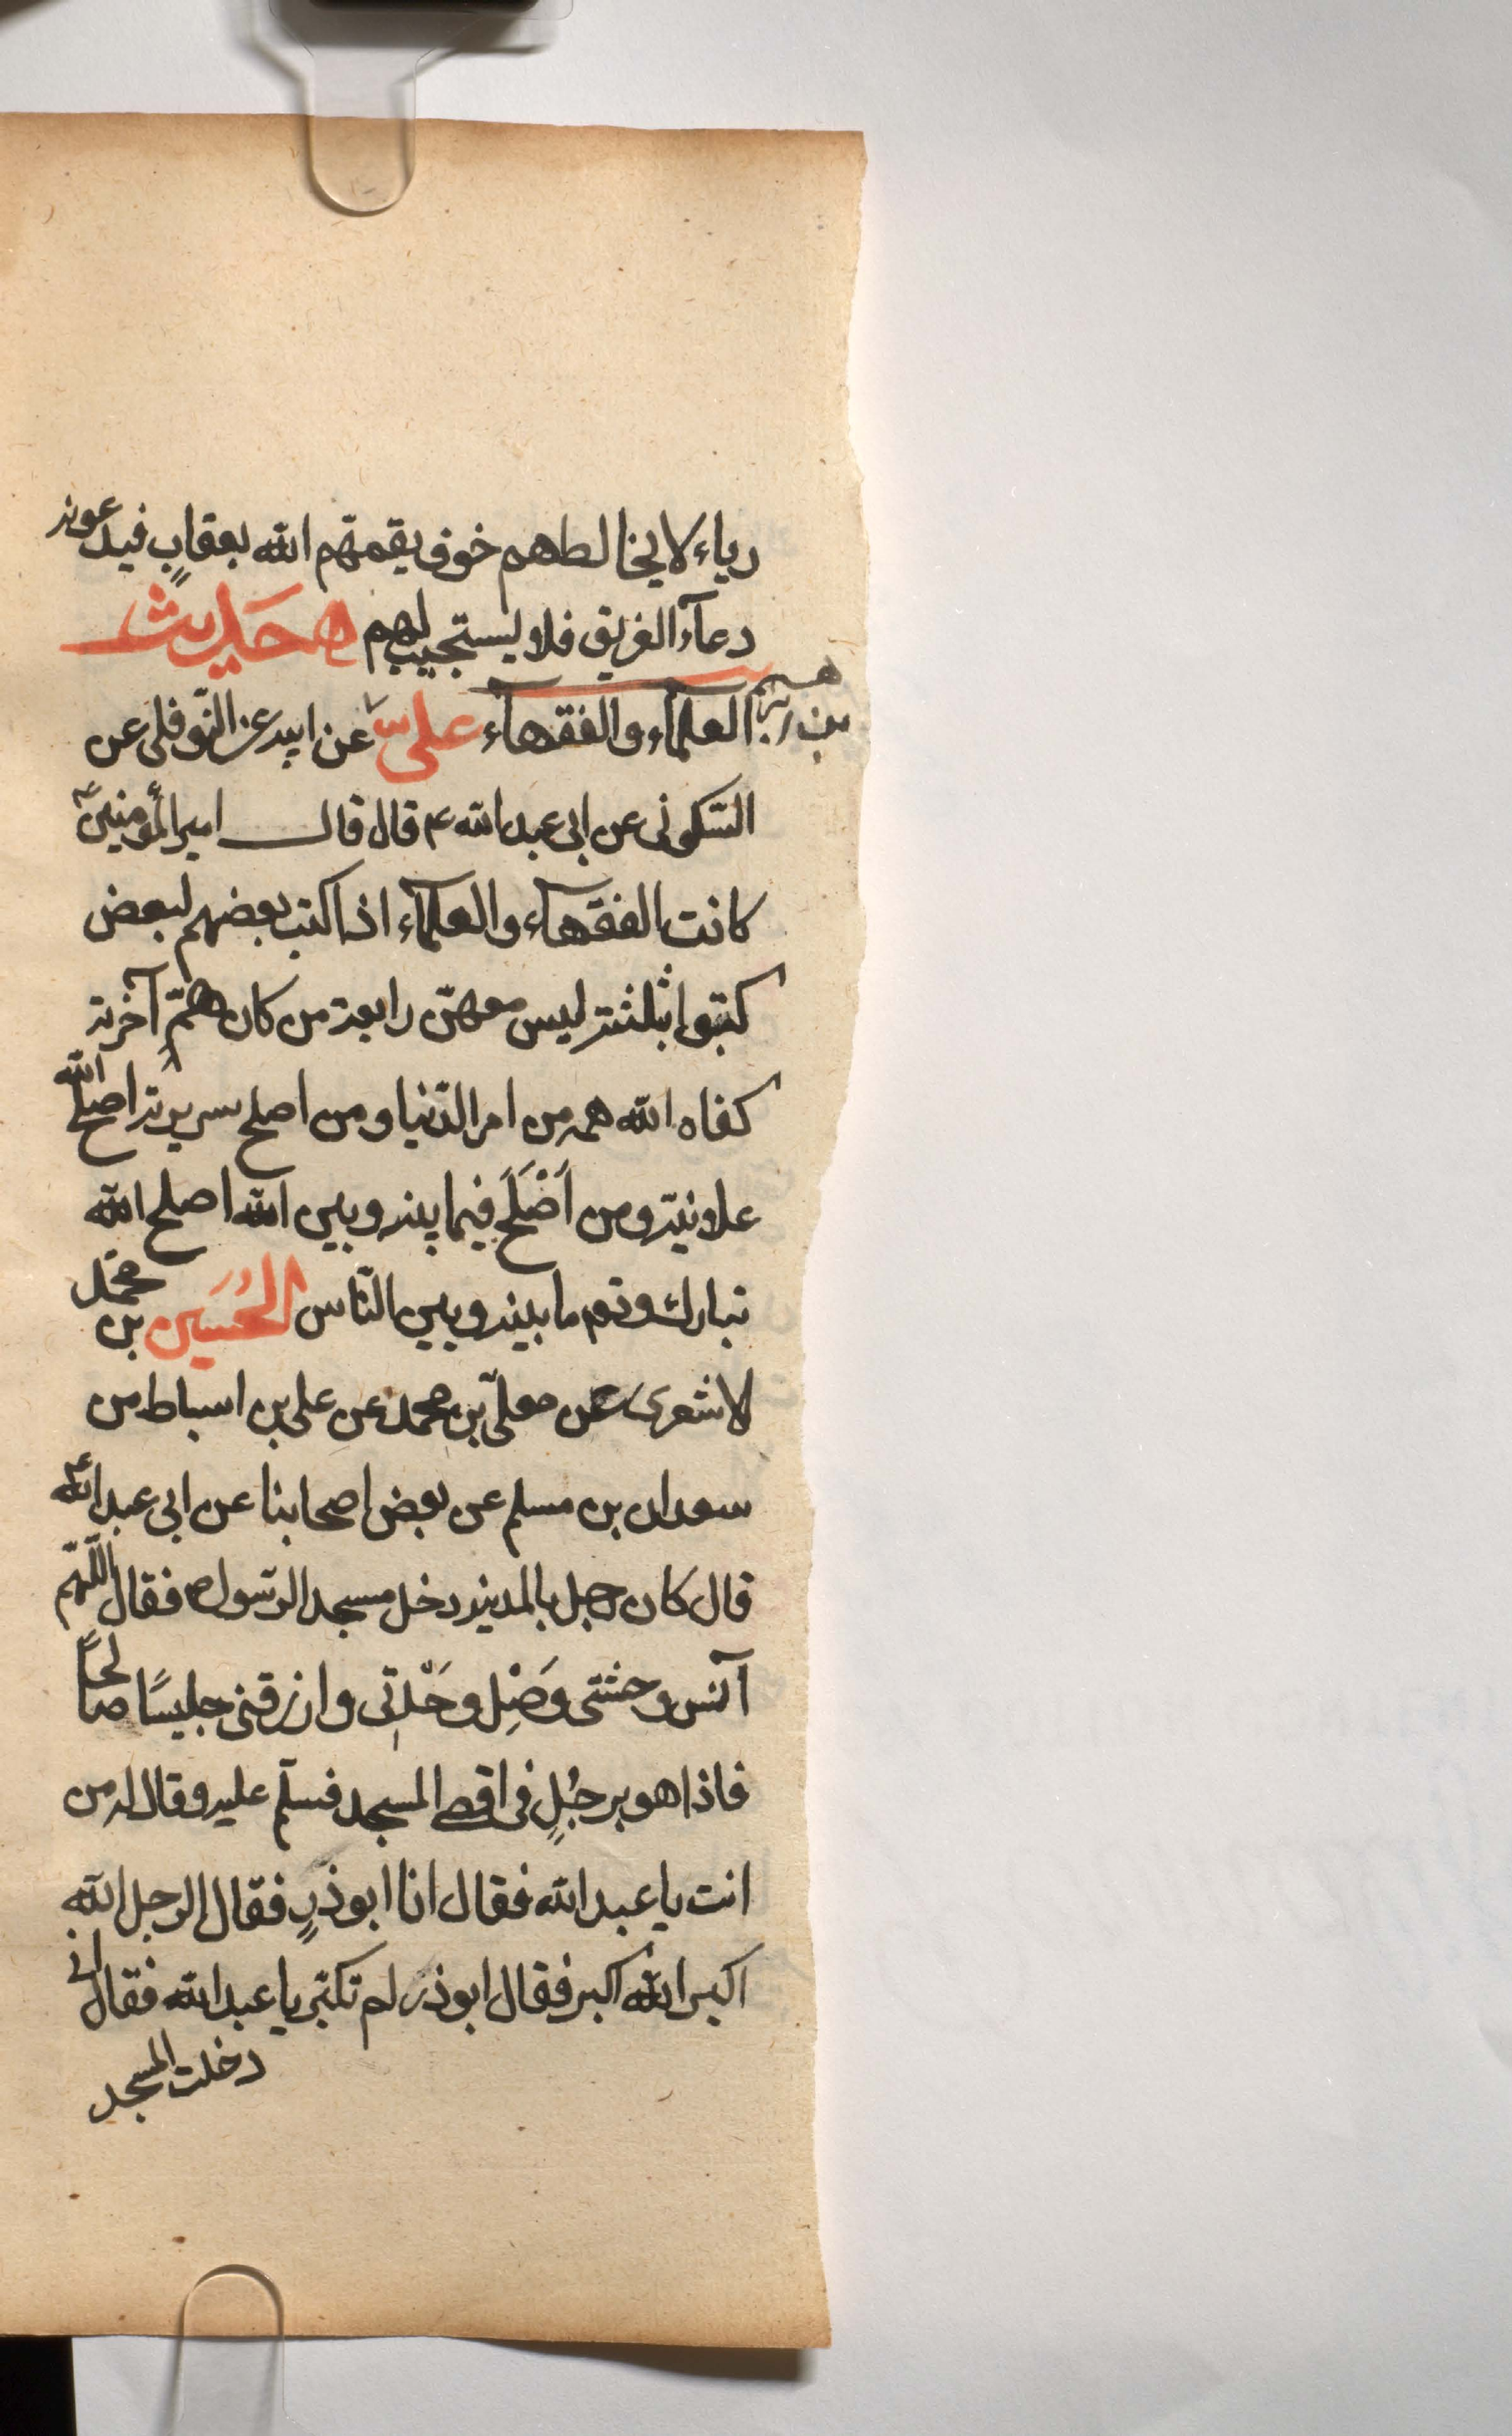 رياء لا يخالطهم خوف يعمّهم الله بعقابٍ فيدعونه
دعآء الغريق فلا يستجيب لهم ه حَديث
العلمآء والفقهآء علىّ عن ابيه عن النّوفلى عن
السّكونى عن ابى عبد الله ع قال قال امير المؤمنين ع
كانت الفقهآء والعلمآء اذا كتب بعضهم لبعض
كتبوا بثلثة ليس معهنّ رابعة من كان همّه آخرته
كفاه الله همه من امر الدّنيا ومن اصلح سريرته اصلح الله
علانيته ومن اَصْلَحَ فيما بينه وبين الله اصلح الله
تبارك وتع ما بينه وبين النّاس الحُسَين بن محمّد
لاشعرى عن معلّى بن محمد عن على بن اسباط من
سعدان بن مسلم عن بعض اصحابنا عن ابى عبد الله ع
قال كان رجل بالمدينه دخل مسجد الرّسول ص فقال اللّهم
آنس وحشتى وَصِل وَحْدتى وارزقنى جليسًا صالحًا
فاذا هو برجُلٍ فى اقصى المسجد فسلّم عليه وقال له من
انت يا عبد الله فقال انا ابو ذرٍ فقال الرجل الله
اكبر الله اكبر فقال ابو ذر لم تكبّر يا عبد الله فقال انى
دخلت المسجد